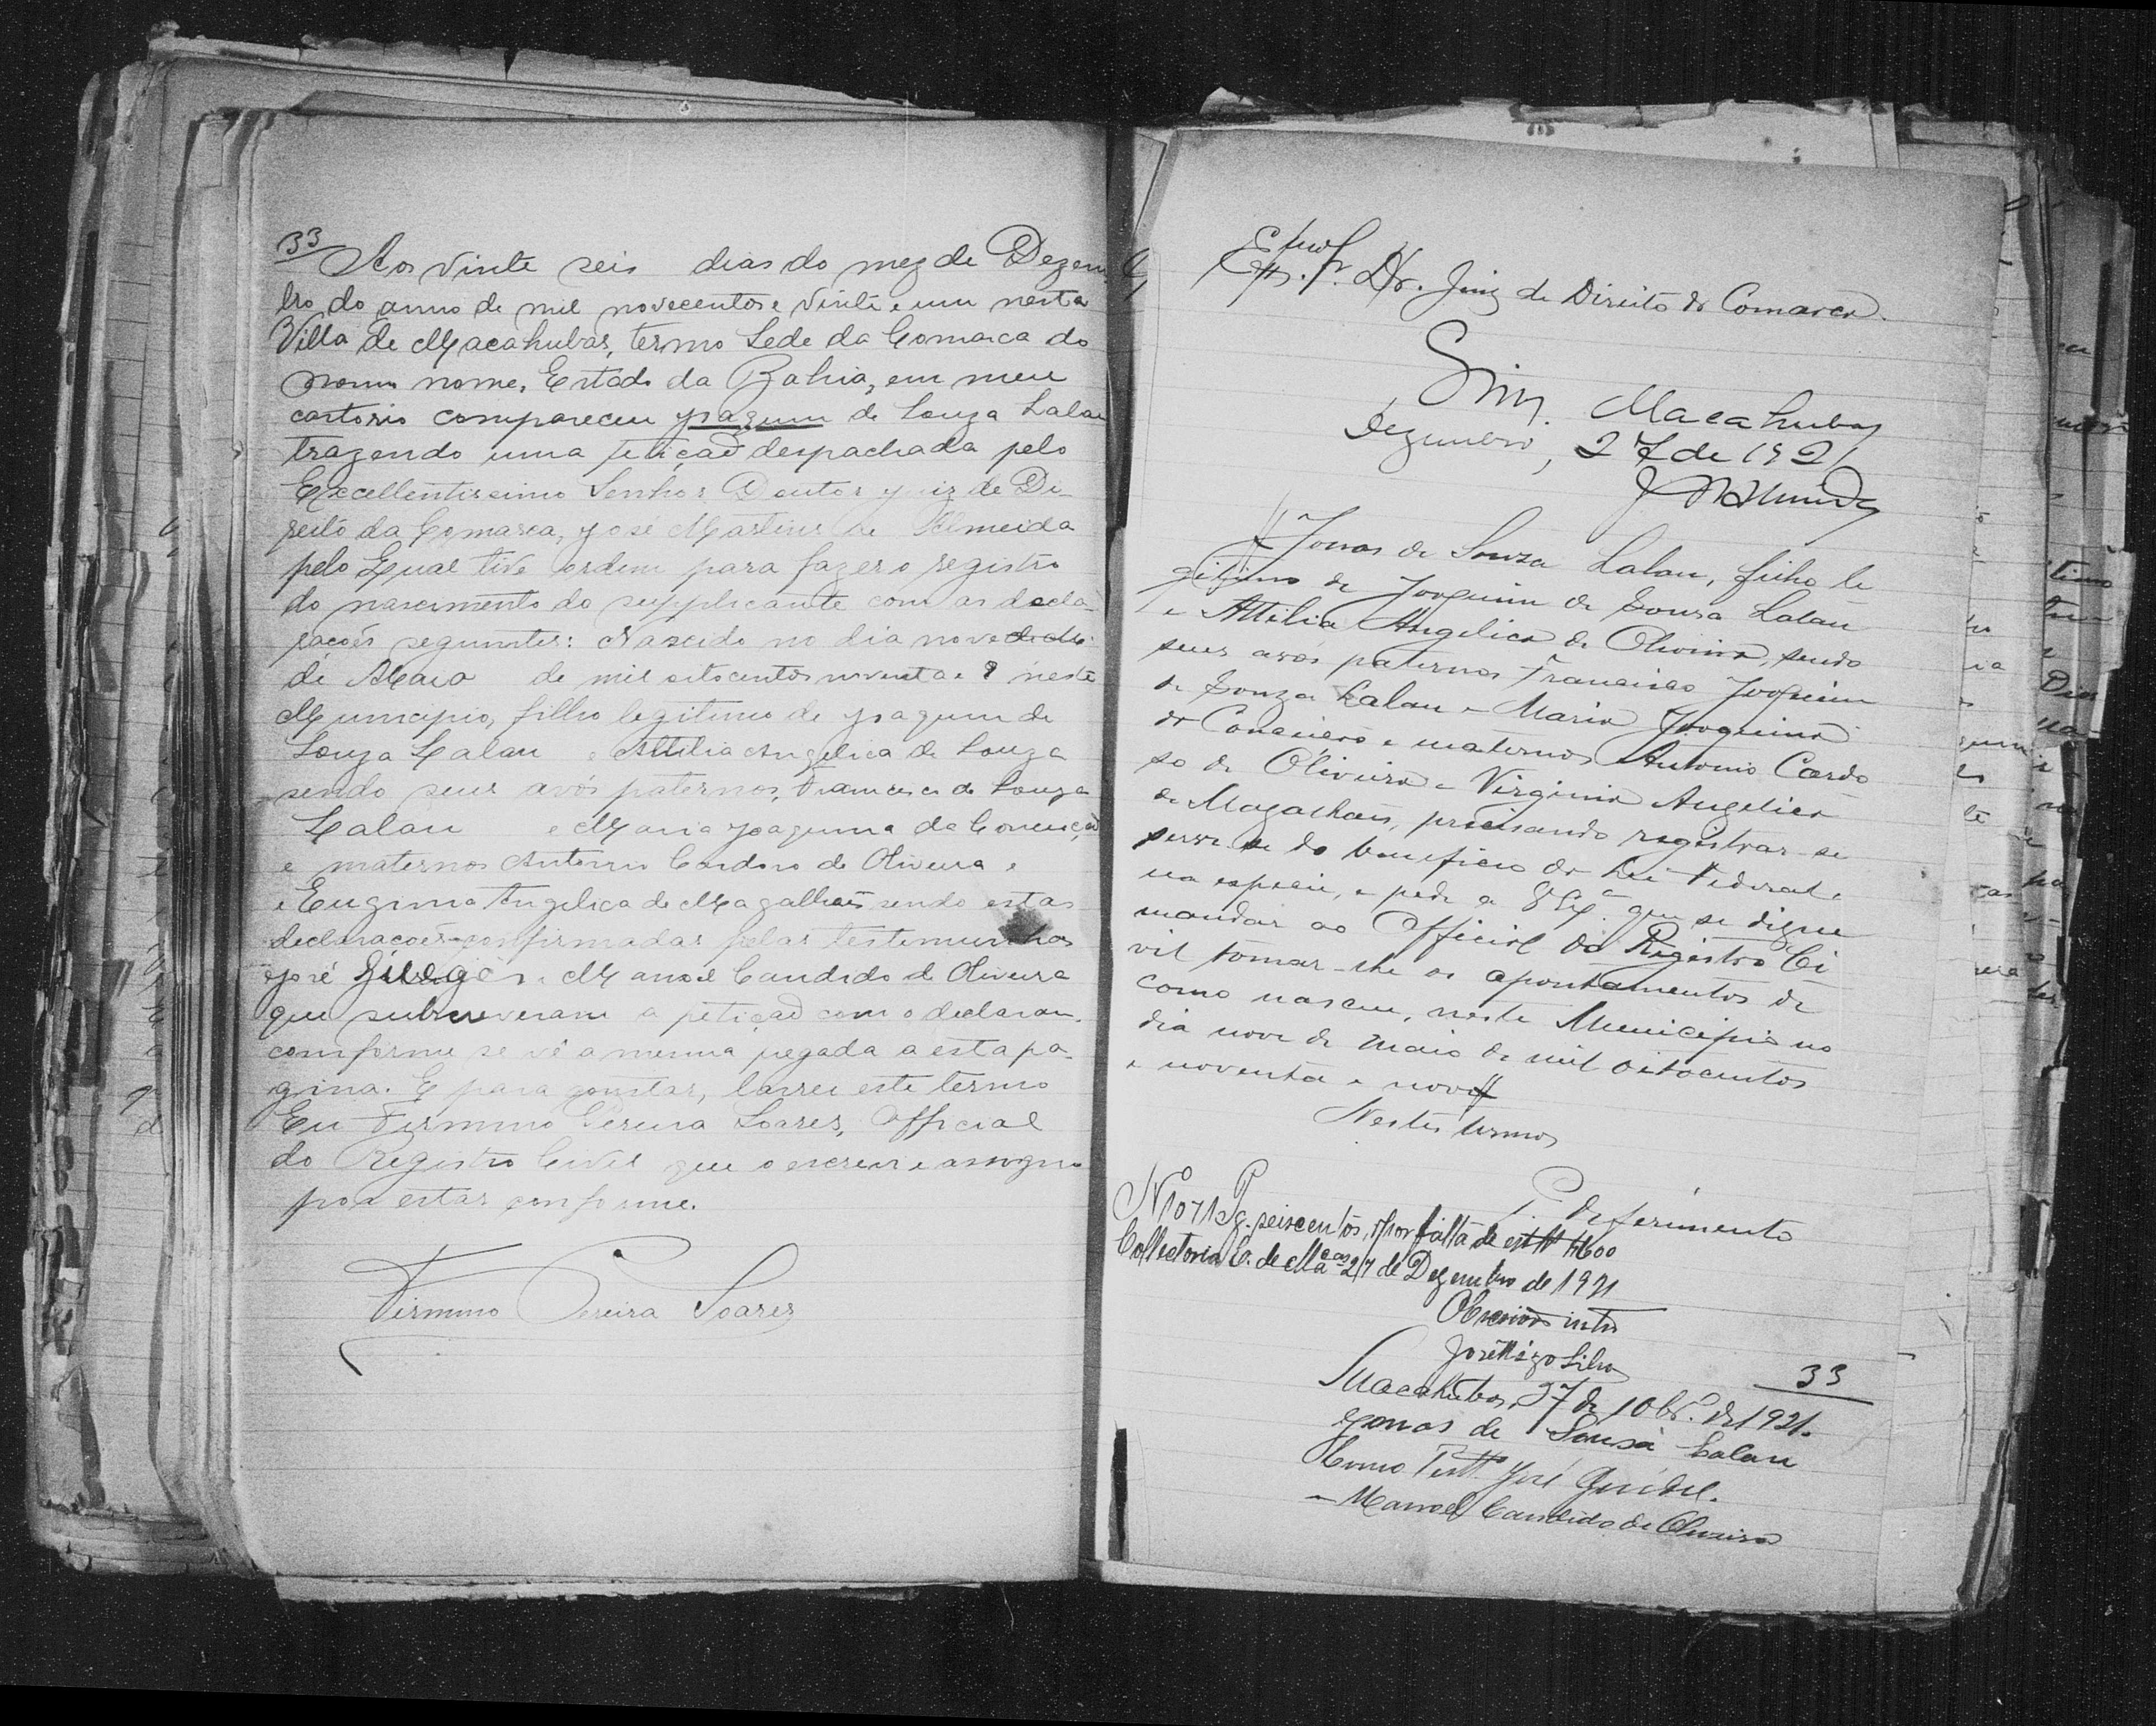 33
Aos vinte seis dias do mez de Dezem
bro do anno de mil novecentos e vinte e um nesta
Villa de Macahubas, termo Sede da Comarca do
nome, Estado da Bahia, em meu
cartorio compareceu Joaquim de Souza Lalau
trazendo uma petição despachada pelo
Excellentissimo Senhor Doutor Juiz de Di-
reito da Comarca, José Martins de Almeida
pelo qual tive ordem para fazer o registro
do nascimento do supplicante com as decla-
rações seguintes: Nascido no dia nove
de Maio de mil oitocentos noventa e 9 neste
Municipio, filho legitimo de Joaquim de
Souza Lalau e Attilia Angelica de Souza
sendo seus avós paternos, Francisco de Souza
Lalau e Maria Joaquina da Conceição
e maternos Antonio Cardoso de Oliveira e
e Eugenia Angelica de Magalhães sendo estas
declaracoes confirmadas pelas testemunhas
José e Manoel Candido de Oliveira
que subscreveram a petição com o declaran.
conforme se vê a mesma pegada a esta pa-
gina. E para constar, lavrei este termo
Eu Firmino Pereira Soares, Official
do Registro Civil que o escrevi e assigno
por estar conforme.
Firmino Pereira Soares
Exmo Sr. Dr. Juiz de Direito da Comarca.
Sim. Macahubas
Dezembro, 27 de 1921
J M Almeida
Jonas de Souza Lalau, filho le
gitimo de Joaquim de Souza Lalau
e Attilia Angelica de Oliveira, sendo
seus avós paternos Francisco Joaquim
de Souza Lalau e Maria Joaquina
da Conceição e maternos Antonio Cardo
so de Oliveira e Virginia Angelica
de Magalhães, precisando registrar-se
serve-se do beneficio da Lei Federal
na especie, e pede a V Exª que se digne
mandar ao Official do Registro Ci
vil tomar-lhe os apontamentos de
como nasceu, neste Municipio no
dia nove de Maio de mil oitocentos
e noventa e nove
Nestes termos
P. deferimento
N 1071 Pg. seiscentos, rs por falta de estª $600
Collectoria E. de Macas 27 de Dezembro de 1921
O Escrivão intº
José Silva
33
Macahubas, 27 de 10br. de 1921.
Jonas de Sousa Lalau
Como Testª José
- Manoel Candido de Oliveira